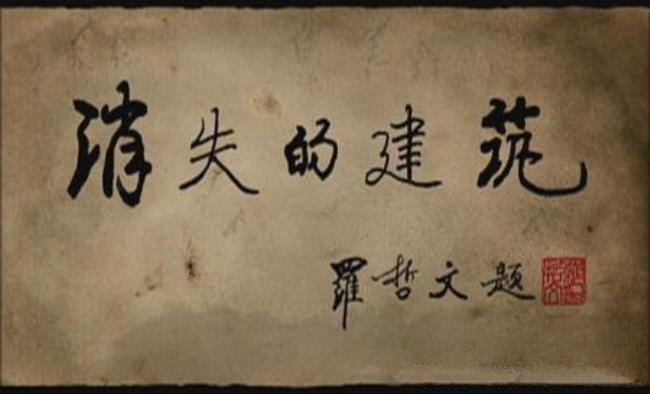 消失的建筑
羅哲文题